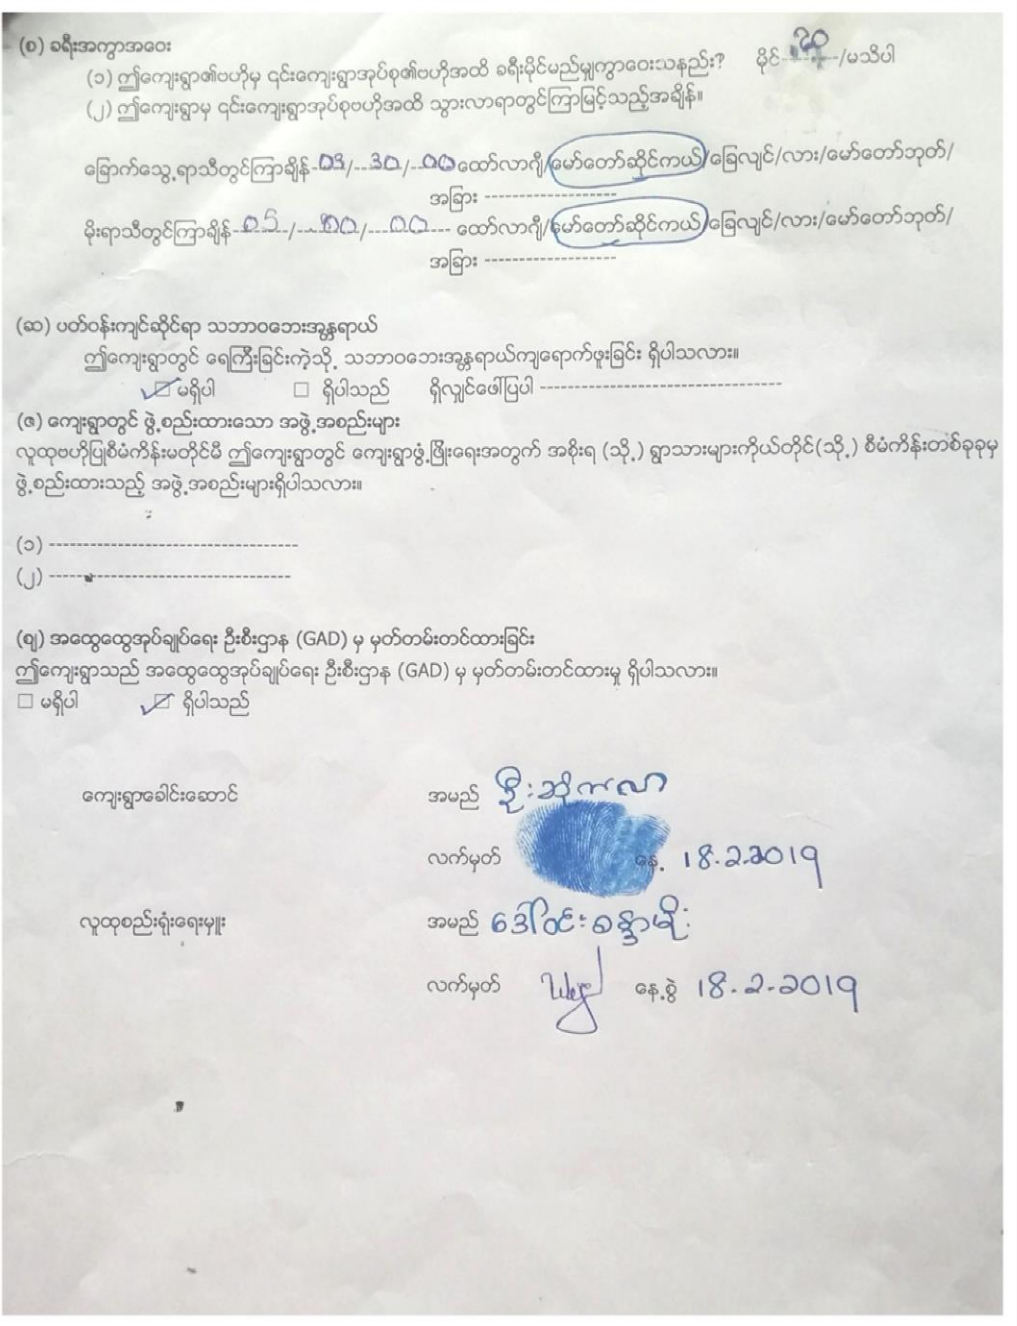 (စ) ခရီးအကွာအဝေး
(၁) ဤကျေးရွာ၏ဗဟိုမှ ၎င်းကျေးရွာအုပ်စု၏ဗဟိုအထိ ခရီးမိုင်မည်မျှကွာဝေးသနည်း? မိုင်-20-/မသိပါ
(၂) ဤကျေးရွာမှ ၎င်းကျေးရွာအုပ်စုဗဟိုအထိ သွားလာရာတွင်ကြာမြင့်သည့်အချိန်။
ခြောက်သွေ့ရာသီတွင်ကြာချိန်-03/--30/--00 ထော်လာဂျီ/မော်တော်ဆိုင်ကယ်/ခြေလျင်/လား/မော်တော်ဘုတ်/
အခြား --------------------
မိုးရာသီတွင်ကြာချိန်-05--/--00/--00--- ထော်လာဂျီ/မော်တော်ဆိုင်ကယ်/ခြေလျင်/လား/မော်တော်ဘုတ်/
အခြား --------------------
(ဆ) ပတ်ဝန်းကျင်ဆိုင်ရာ သဘာဝဘေးအန္တရာယ်
ဤကျေးရွာတွင် ရေကြီးခြင်းကဲ့သို့ သဘာဝဘေးအန္တရာယ်ကျရောက်ဖူးခြင်း ရှိပါသလား။
☑ မရှိပါ □ ရှိပါသည် ရှိလျှင်ဖေါ်ပြပါ -----------------------------------
(ဇ) ကျေးရွာတွင် ဖွဲ့စည်းထားသော အဖွဲ့အစည်းများ
လူထုဗဟိုပြုစီမံကိန်းမတိုင်မီ ဤကျေးရွာတွင် ကျေးရွာဖွံ့ဖြိုးရေးအတွက် အစိုးရ (သို့) ရွာသားများကိုယ်တိုင်(သို့) စီမံကိန်းတစ်ခုခုမှ
ဖွဲ့စည်းထားသည့် အဖွဲ့အစည်းများရှိပါသလား။
(၁) ------------------------------------
(၂) -----------------------------------
(ဈ) အထွေထွေအုပ်ချုပ်ရေး ဦးစီးဌာန (GAD) မှ မှတ်တမ်းတင်ထားခြင်း
ဤကျေးရွာသည် အထွေထွေအုပ်ချုပ်ရေး ဦးစီးဌာန (GAD) မှ မှတ်တမ်းတင်ထားမှု ရှိပါသလား။
□ မရှိပါ ☑ ရှိပါသည်
ကျေးရွာခေါင်းဆောင် အမည် ဦးဆိုကလာ
လက်မှတ် နေ့ 18.2.2019
လူထုစည်းရုံးရေးမှူး အမည် ဒေါ်ဝင်းခန္ဒာမိုး
လက်မှတ် နေ့စွဲ 18.2.2019